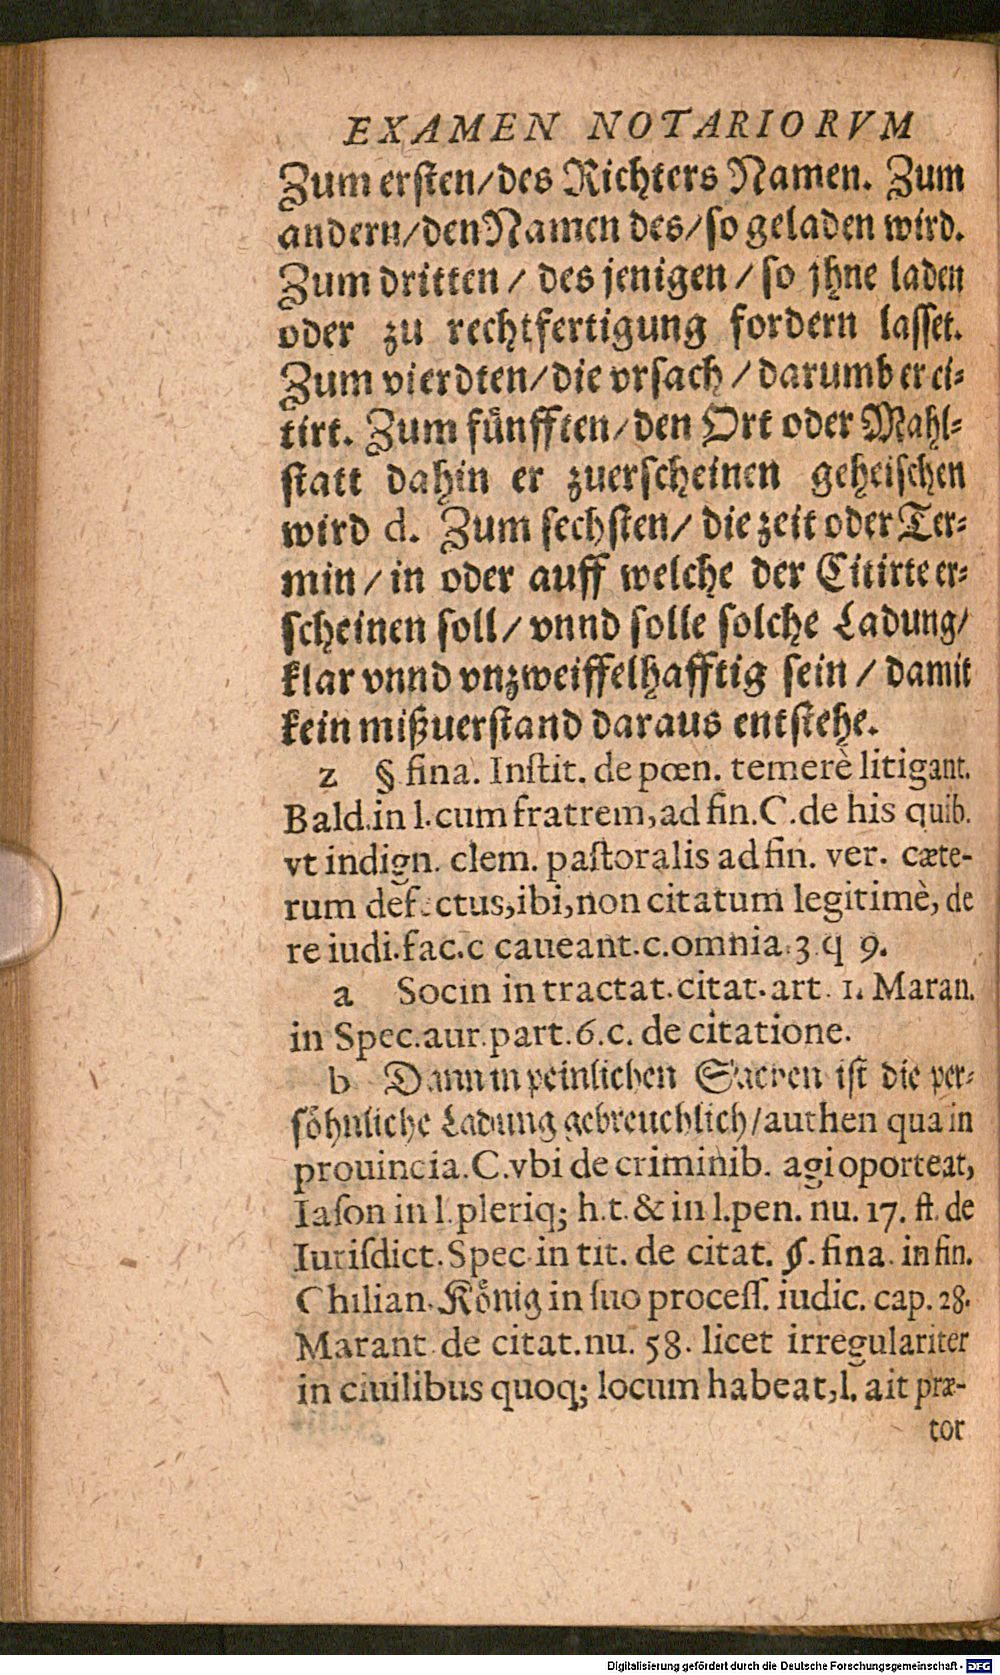 EXAMEN NOTARIORVM
Zum ersten/des Richters Namen. Zum
andern/den Namen des/so geladen wird.
Zum dritten / des jenigen / so jhne laden
oder zu rechtfertigung fordern lasset.
Zum vierdten/die vrsach / darumb er ci⸗
tirt. Zum fuͤnfften/den Ort oder Mahl⸗
statt dahin er zuerscheinen geheischen
wird d. Zum sechsten/ die zeit oder Ter⸗
min / in oder auff welche der Citirte er⸗
scheinen soll/ vnnd solle solche Ladung/
klar vnnd vnzweiffelhafftig sein / damit
kein mißuerstand daraus entstehe.
z §. fina. Inſtit. de pœn. temerè litigant.
Bald.in l.cum fratrem,ad fin.C.de his quib.
vt indign. clem. paſtoralis ad fin. ver. cæte-
rum defectus,ibi,non citatum legitimè, de
re iudi.fac.c caueant.c.omnia.3.q 9.
a Socin in tractat.citat.art. 1. Maran.
in Spec.aur.part.6.c. de citatione.
b Dann in peinlichen Sachen ist die per⸗
soͤhnliche Ladung gebreuchlich/authen qua in
prouincia.C.vbi de criminib. agi oporteat,
Iaſon in l.pleriq; h.t.& in l.pen. nu. 17. ff. de
Iuriſdict.Spec.in tit. de citat. §. fina. in fin.
Chilian.Koͤnig in ſuo proceſſ. iudic. cap. 28.
Marant de citat.nu. 58. licet irregulariter
in ciuilibus quoq; locum habeat,l. ait præ-
tor
Digitalisierung gefördert durch die Deutsche Forschungsgemeinschaft - DFG